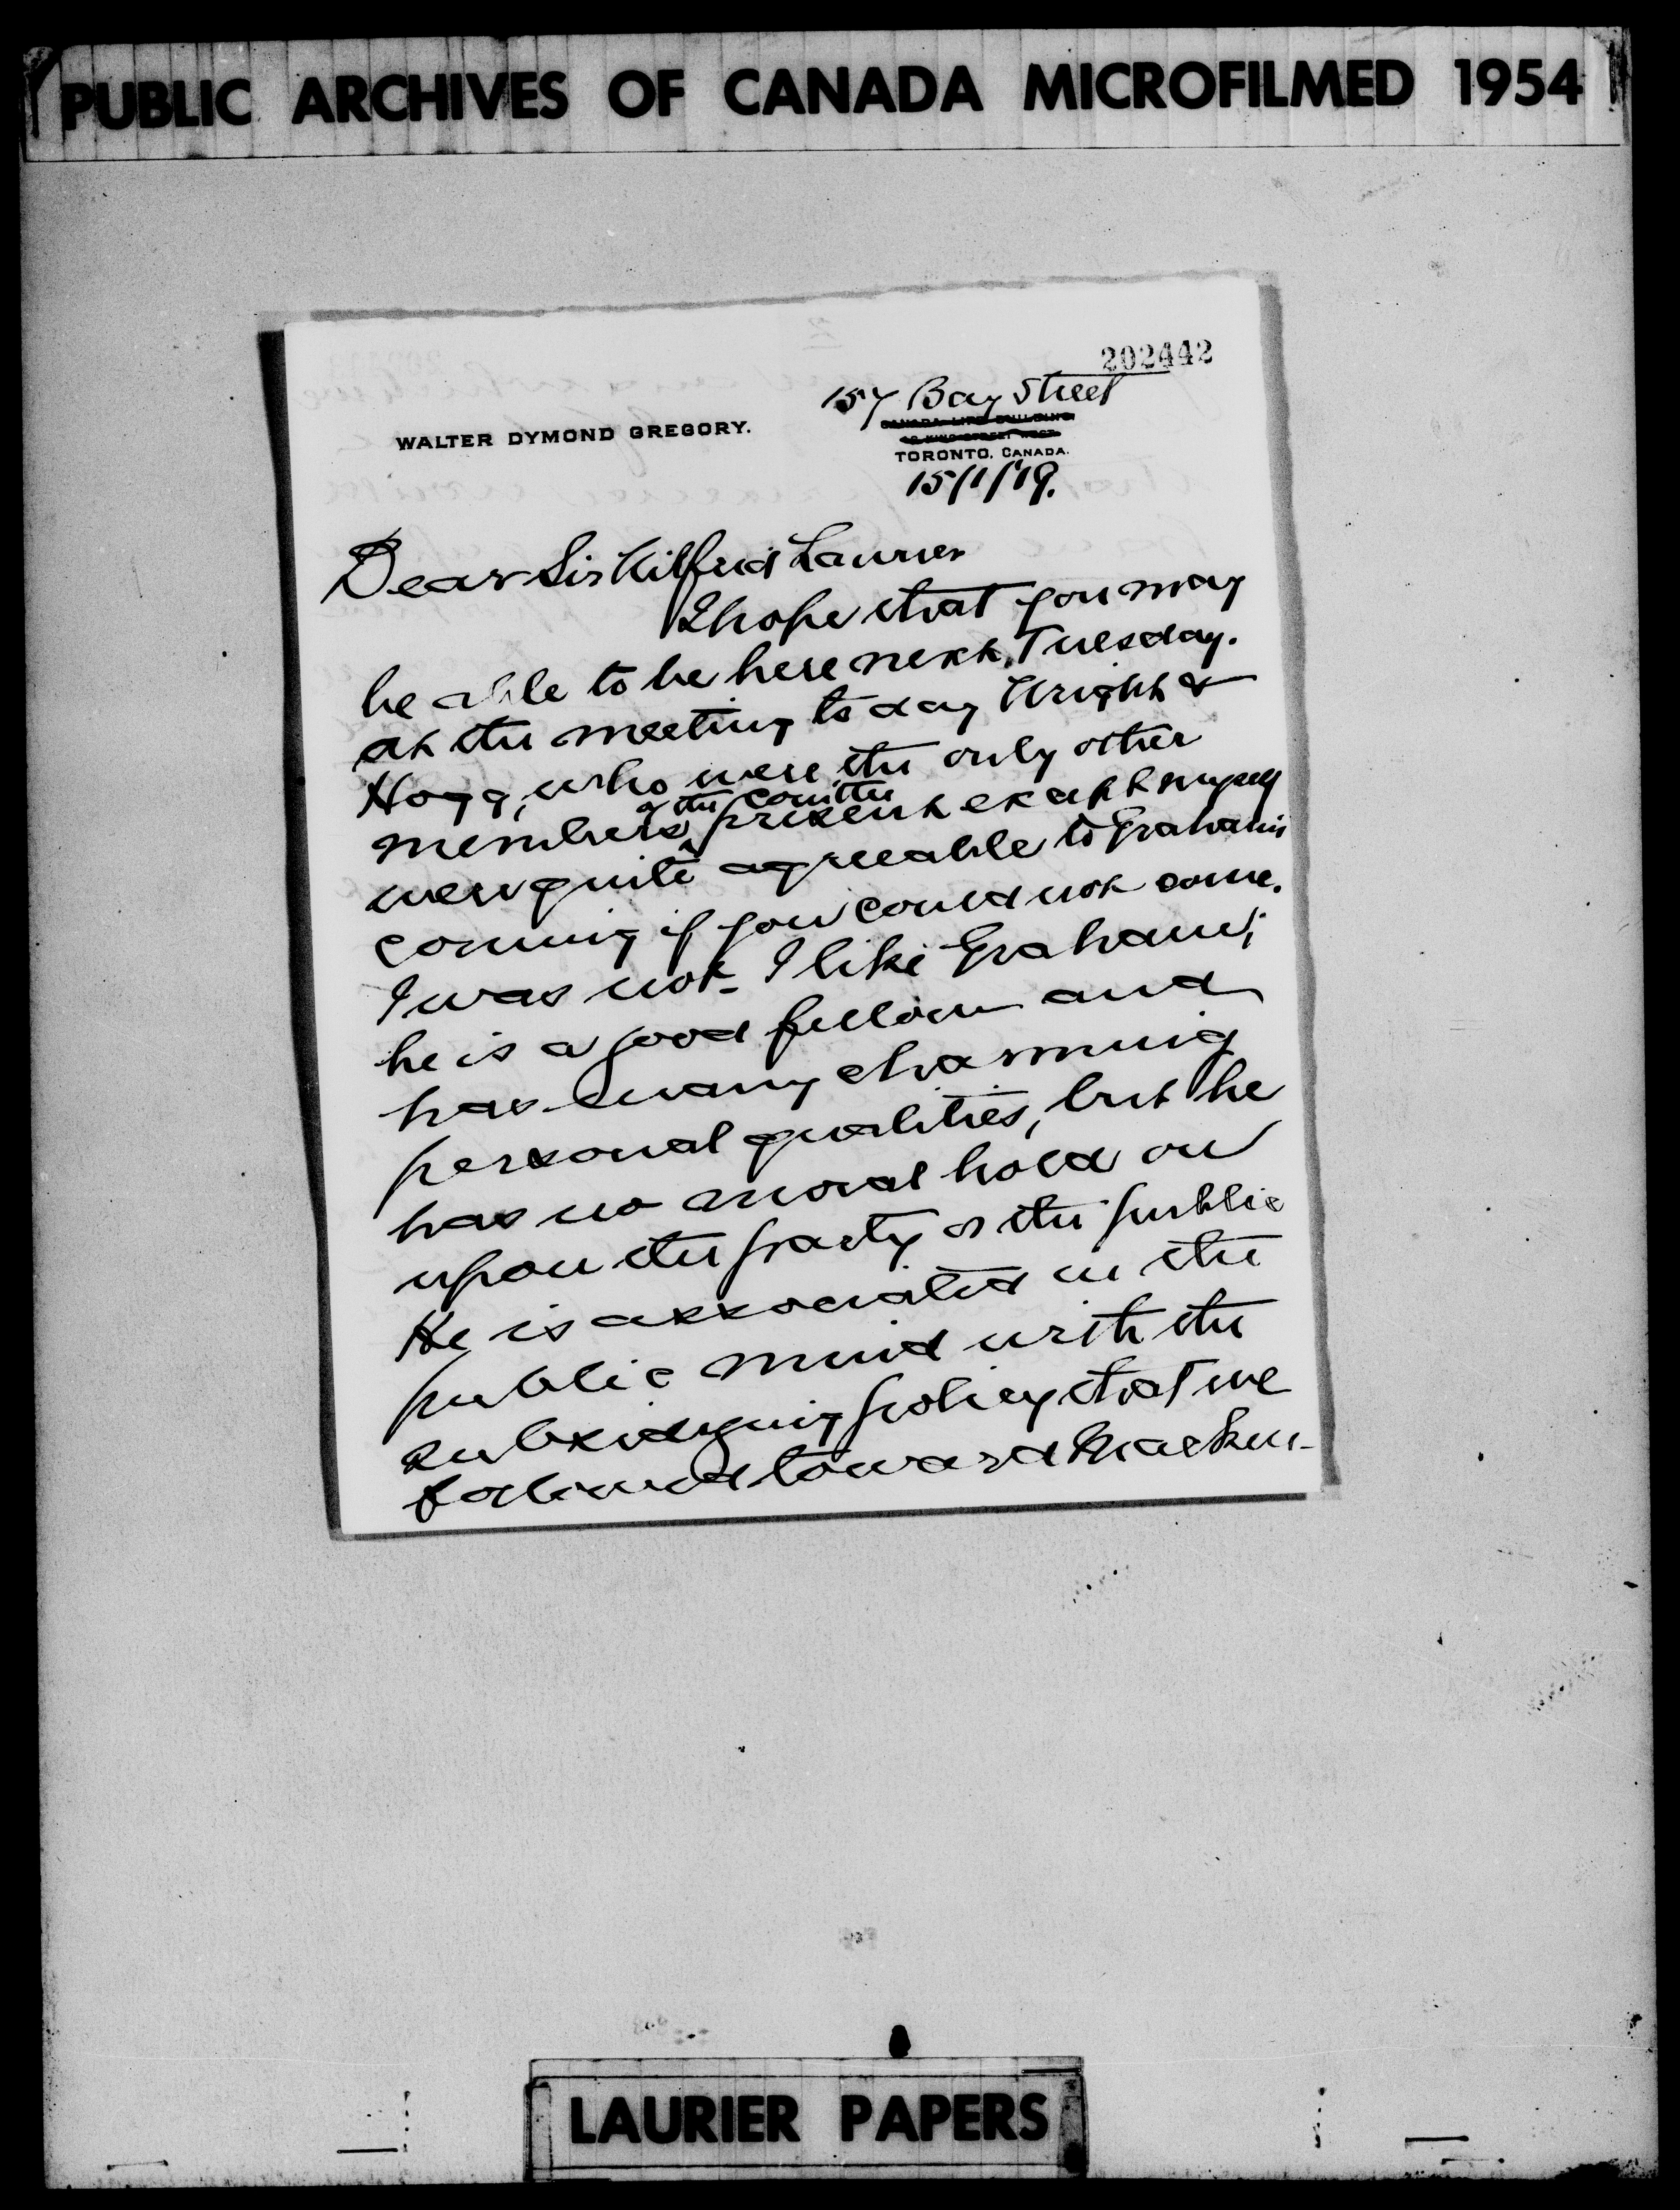 PUBLIC ARCHIVES OF CANADA MICROFILMED 1954
202442
157 Bay Street
WALTER DYMOND GREGORY.
CANADA LIFE BUILDING
46 KING STREET WEST
TORONTO, CANADA.
15/1/19.
Dear Sir Wilfrid Laurier
I hope that you may
be able to be here next Tuesday.
At the meeting today Wright &
Hogg, who were the only other
members of the comttee present except myself
were quite agreeable to Graham's
coming if you could not come.
I was not. I like Graham;
he is a good fellow and
has many charming
personal qualities, but he
has no moral hold on
upon the party or the public
He is associated in the
public mind with the
subsidizing policy that we
followed toward Macken-
LAURIER PAPERS